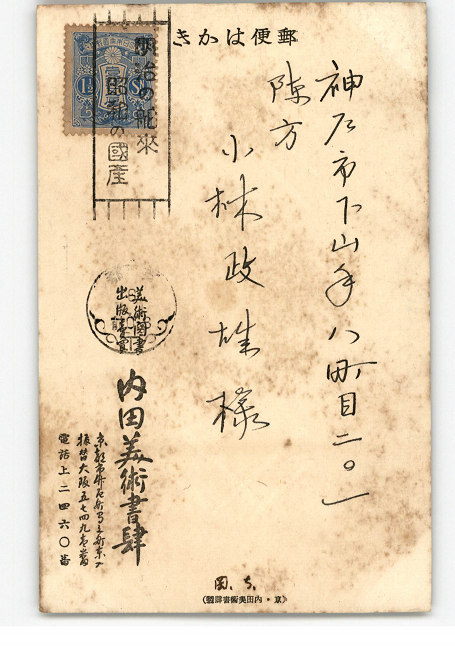 郵便はかき
神戸市下山手八町目二〇ノ一
陳方
小林政雄様
明治の舶来
昭和の國産
壹
1½ Sn
美術図書
出版
内田美術書肆
振替大阪五七四九
電話上二四六〇番
（京・内田美術書肆製）